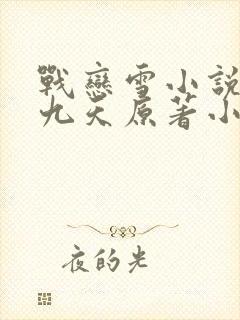 戰戀雪小說
九天原著小
夜的光